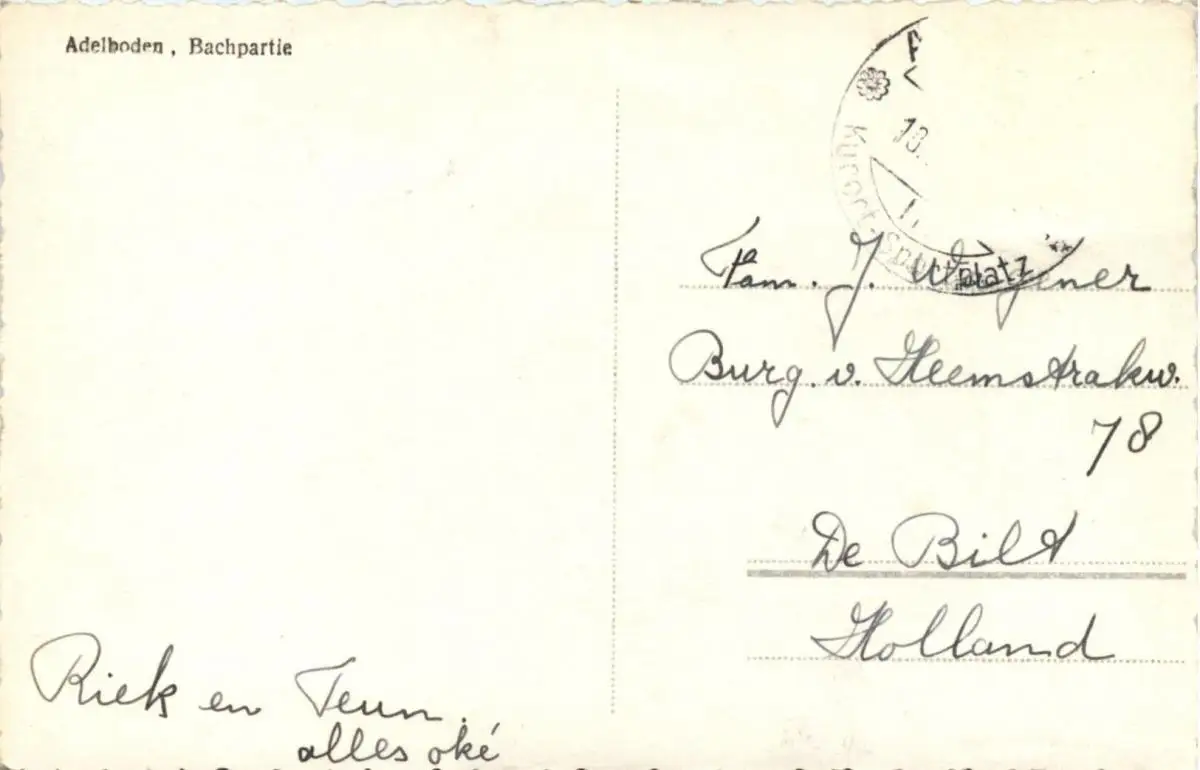 Adelboden, Bachpartie
18.
Kurort Sportplatz
Fam. J. Wagener
Burg. v. Heemstrakw.
78
De Bilt
Holland
Riek en Teun.
alles oké